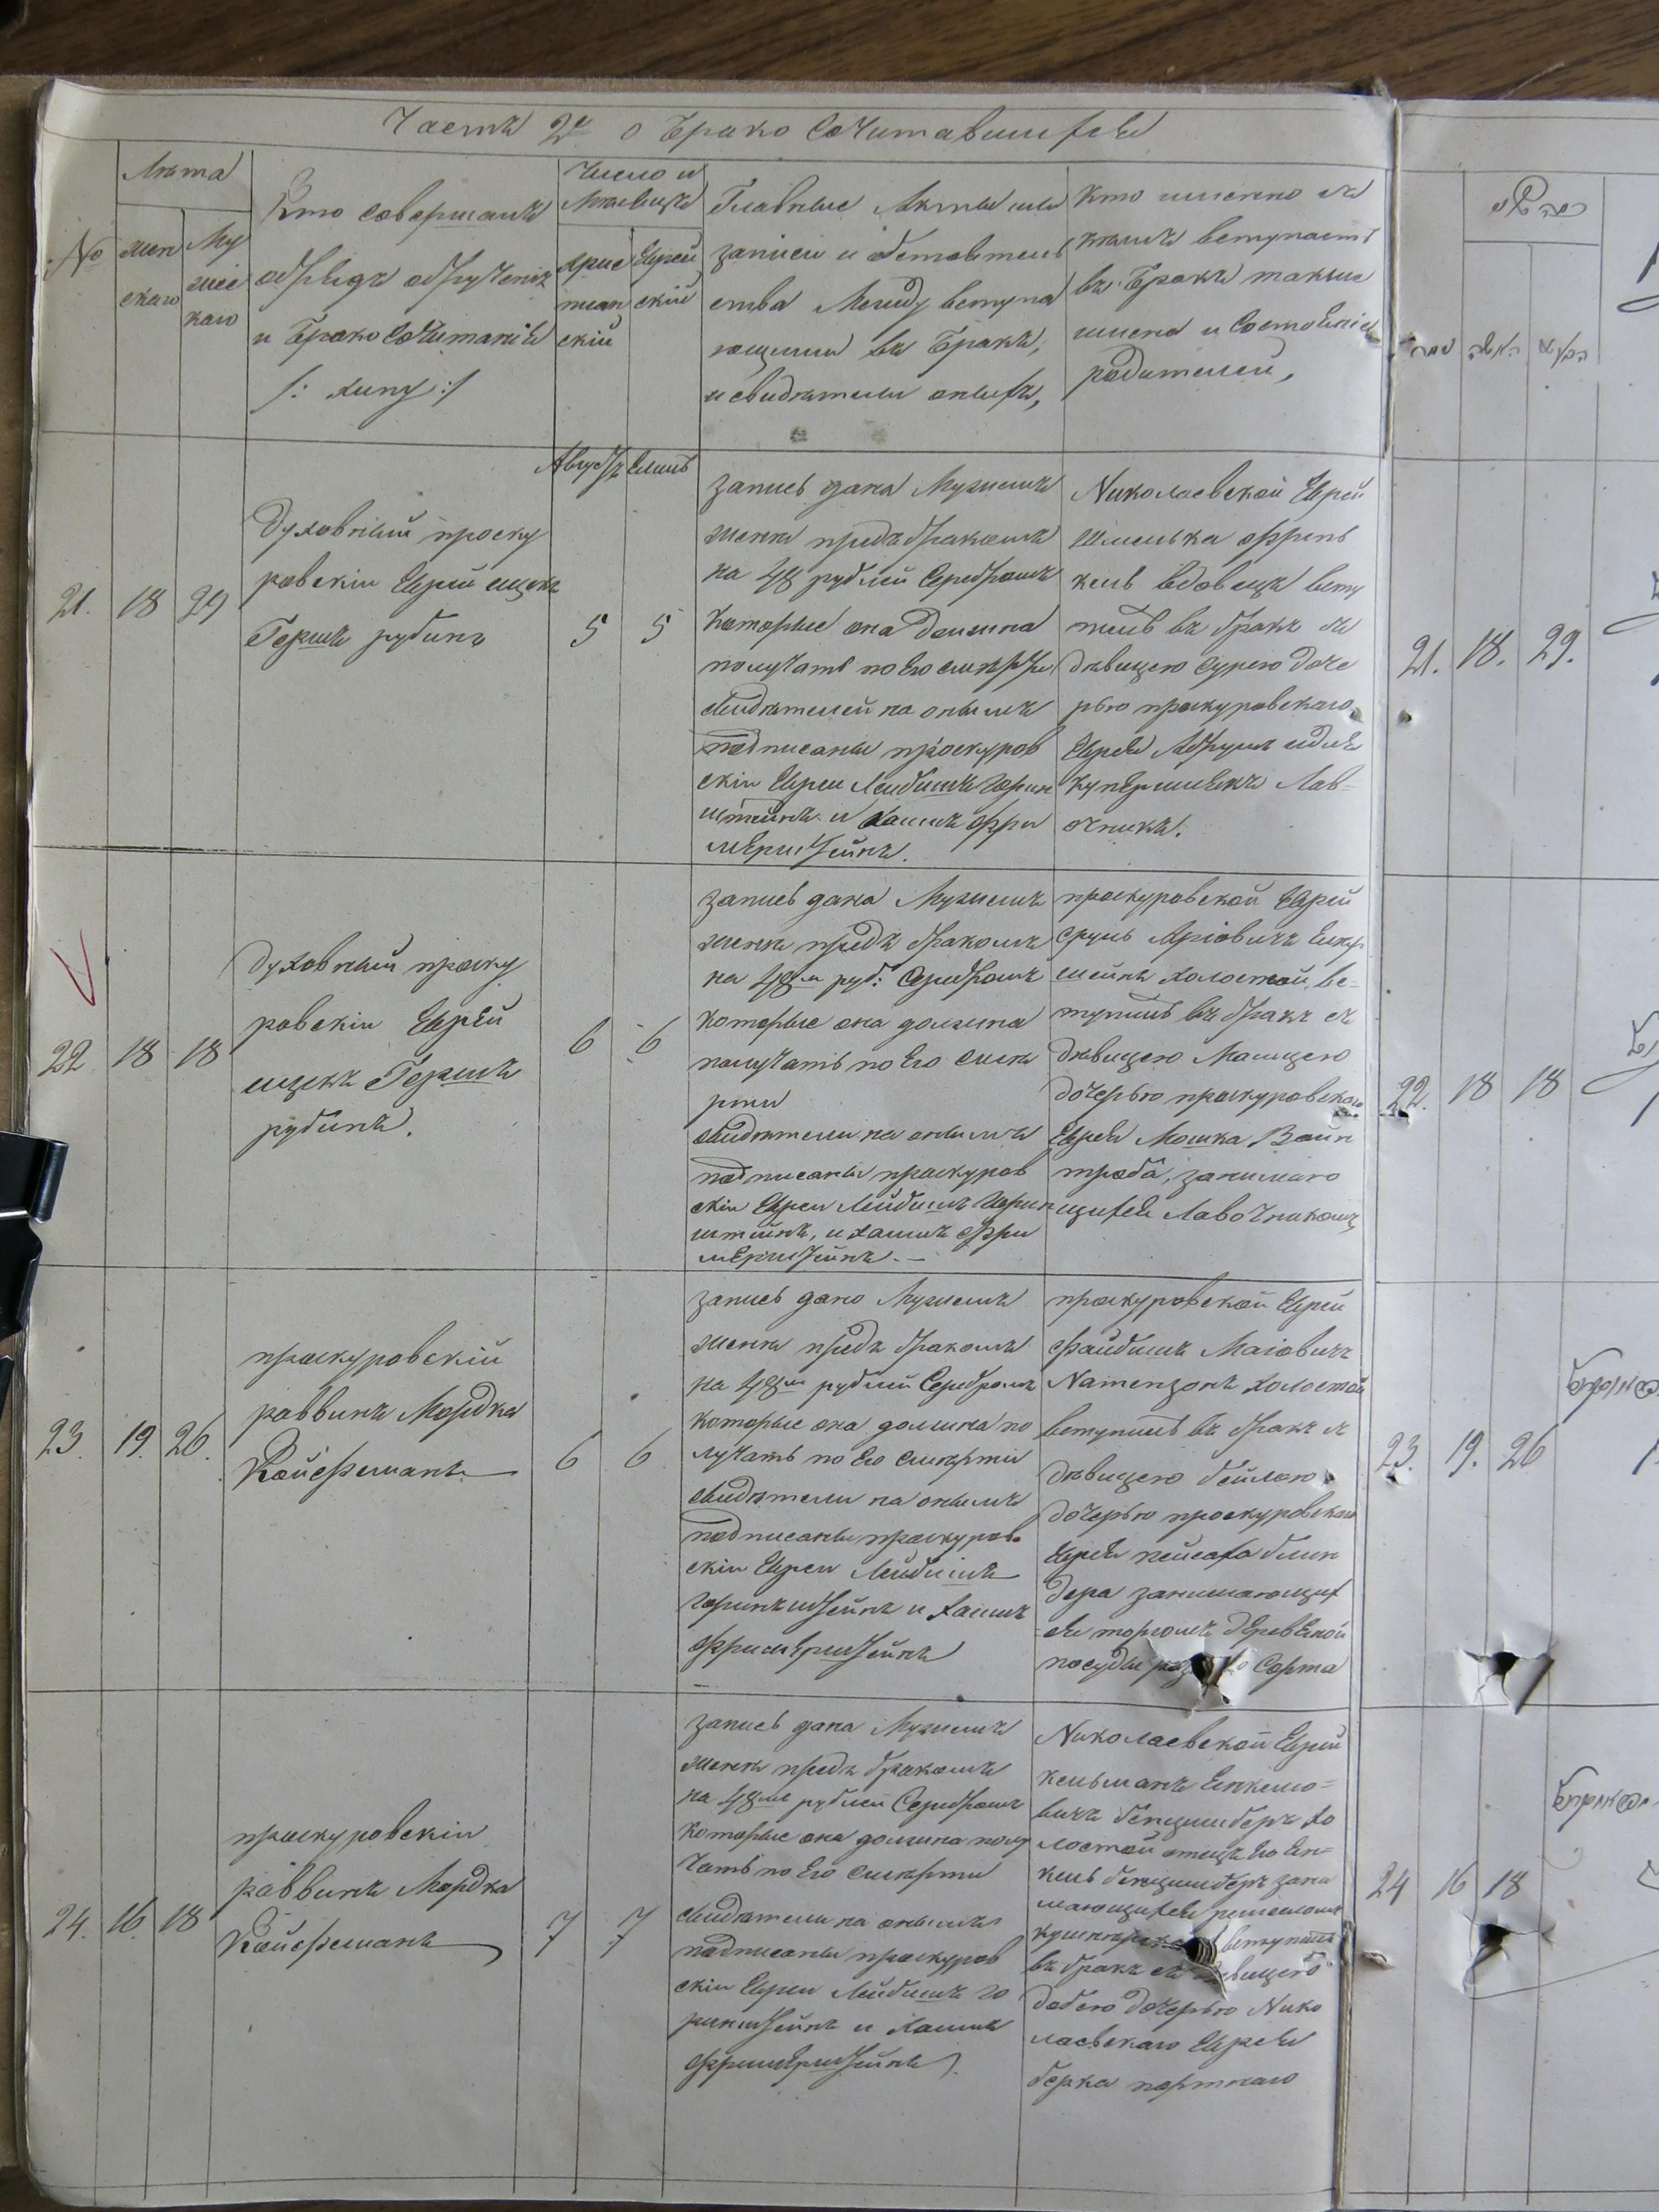 Часть 2я о Брако Сочитавшихся
№
Лѣта
жен
скаго
Му
жес
каго
Кто совершалъ
обрядъ обрученія
и Брако Сочитанія
/: хипу :/
Число и
Мѣсяцъ
хрис
тиан
скій
Еврей
скій
Главные Акты или
записи и обстоятель
ства Между вступа
ющими въ Бракъ,
и свидѣтели оныхъ,
Кто именно съ
кѣмъ вступаетъ
въ Бракъ также
имена и Состоянія
родителей,
21. 18 29
Духовный проску
ровскій Еврей ицекъ
Гершъ рубинъ
Августъ Елиль
5 5
запись дана Мужемъ
женѣ предъ бракомъ
на 48 рублей Серебромъ
которые она должна
получать по Его смерти
свидѣтелей на онымъ
подписаны проскуров
скіи Евреи Лейбишъ Горин
штейнъ и Хаимъ Фри
мерштейнъ.
Николаевской Еврей
Шмелька френ
кель вдовецъ всту
пилъ въ бракъ съ
дѣвицею Сурою доче
рью проскуровскаго
Еврея Абрума
Купершмекъ Лав-
очникъ.
22 18 18
Духовный проску
ровскіи Еврей
ицекъ Гершъ
рубинъ.
6 6
запись дана Мужемъ
женѣ предъ бракомъ
на 48м руб: Серебромъ
которые она должна
получать по Его смѣ
рти
свидѣтели на онымъ
подписаны проскуров
скіи Евреи Лейбишъ Горин
штейнъ, и Хаимъ Фри
мерштейнъ. —
проскуровской Еврей
Сруль Аріовичъ
холостой, вс-
тупилъ въ бракъ съ
дѣвицею Малицею
дочерью проскуровскаго
Еврея Мошка Вайн
троба, занимаю
щихся Лавочникомъ
23. 19. 26.
проскуровскій
раввинъ Мордка
Койсфманъ
6 6
запись дано Мужемъ
женѣ предъ бракомъ
на 48м рублей Серебромъ
которые она должна по
лучать по Его смерти
свидѣтели на онымъ
подписаны проскуров
скіи Евреи Лейбишъ
Горинштейнъ и Хаимъ
Фримерштейнъ
проскуровской Еврей
Файбишъ Маіовичъ
Натензонъ холостой
вступилъ въ бракъ съ
дѣвицею бейлою
дочерью проскуровскаго
Еврея пейсаха блин
дера занимающих
ся торгомъ деревеной
посуды Сорта
24. 16. 18
проскуровскіи
раввинъ Мордка
Койсфманъ
7 7
запись дана Мужемъ
женѣ предъ бракомъ
на 48м рублей Серебромъ
которые она должна полу
чать по Его смерти
свидѣтели на онымъ
подписаны проскуров
скіи Евреи Лейбишъ Го
ринштейнъ и Хаимъ
Фримерштейнъ
Николаевской Еврей
кельманъ Енкелю-
вичъ бенцимберъ хо
лостой отецъ Его Ен-
кель бенцимберъ зани
мающихся
вступилъ
въ бракъ съ дѣвицею
добою дочерью Нико
лаевскаго Еврея
берка портнаго
21. 18. 29.
22. 18 18
23. 19. 26
24 16 18